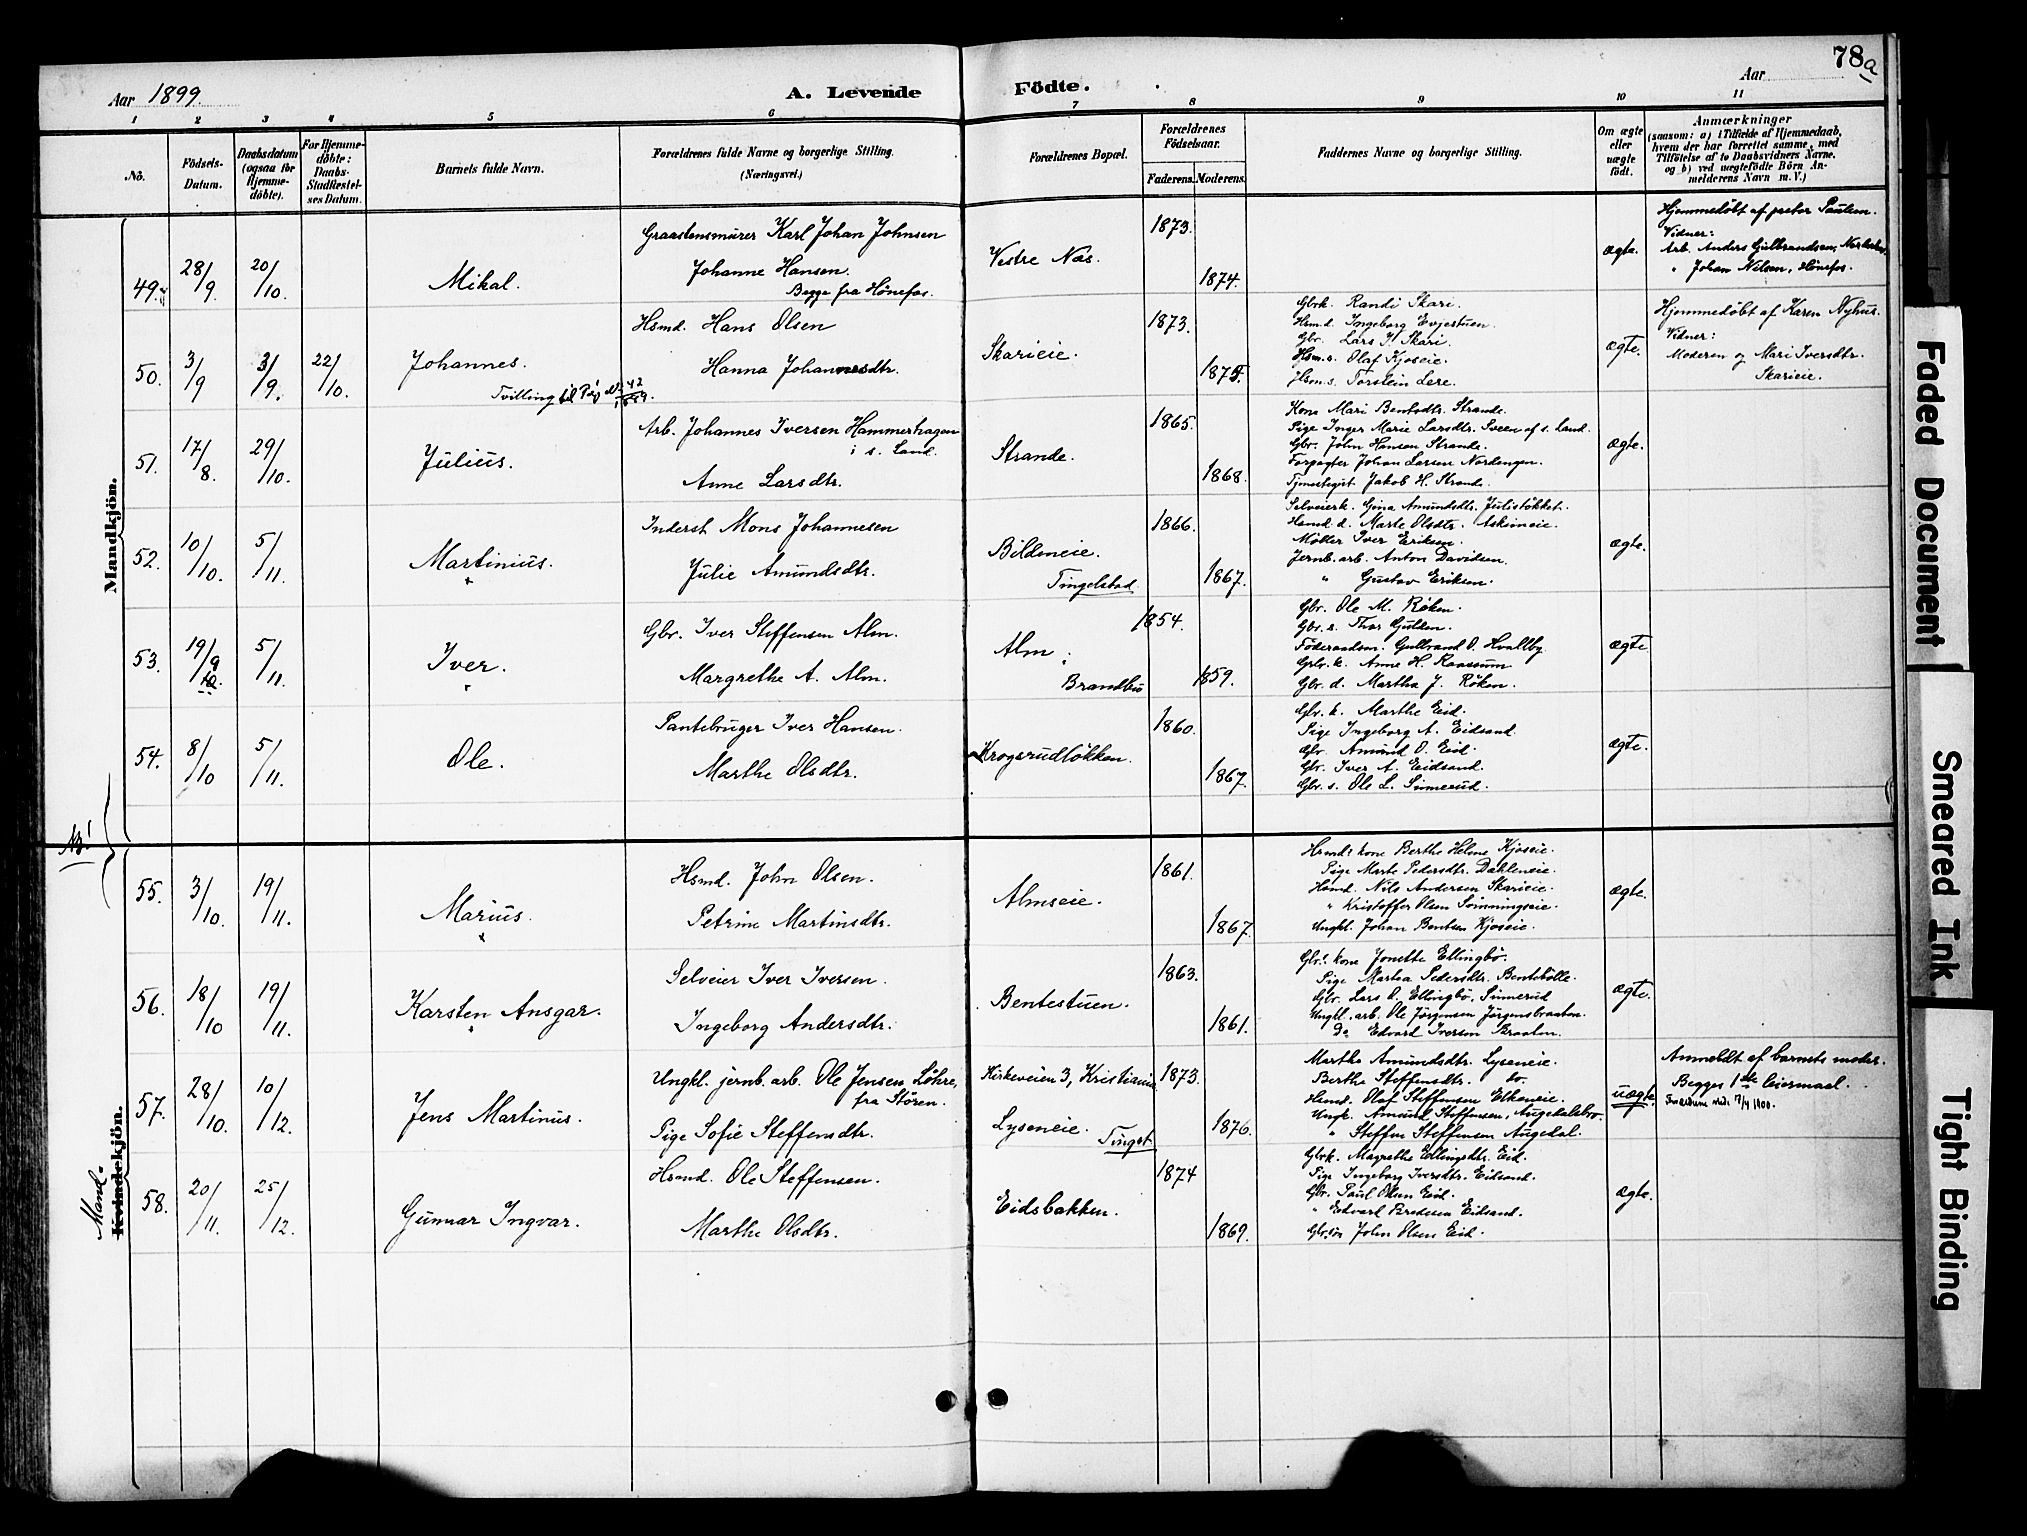 78a
Aar 1899.
A. Levende Födte.
Aar
1 2 3 4 5 6 7 8 9 10 11
No.
Födsels-Datum.
Daabsdatum (ogsaa for Hjemme-döbte).
For Hjemme-döbte: Daabs-Stadfæstel-ses Datum.
Barnets fulde Navn.
Forældrenes fulde Navne og borgerlige Stilling. (Næringsvei.)
Forældrenes Bopæl.
Forældrenes Födselsaar.
Faderens. Moderens.
Faddernes Navne og borgerlige Stilling.
Om ægte eller uægte födt.
Anmærkninger
(saasom: a) i Tilfælde af Hjemmedaab,
hvem der har forrettet samme, med
Tilföielse af to Daabsvidners Navne.
og b) ved uægtefödte Börn An-
melderens Navn m. V.)
Mandkjön.
49. 28/9. 20/10. Mikal.
Graastensmurer Karl Johan Johnsen
Johanne Hansen.
Begge fra Hönefos.
Vestre Næs.
1873.
1874.
ægte.
Hjemmedöbt af
Vidner:
Arb. Anders Gulbrandsen,
" Johan Nilsen, Hönefos.
50. 3/9 3/9. 22/10. Johannes.
Tvilling til Pige No 42 1899.
Hsmd. Hans Olsen
Hanna Johannesdtr.
Skarieie.
1873.
1875.
Gbrk. Randi Skari.
Hsm.d. Ingeborg Evjestuen.
Gbr. Lars J. Skari.
Hsm.s. Olaf Kjoseie.
Hsm.s. Torstein Lere.
ægte.
Hjemmedöbt af Karen Nyhus.
Vidner:
Moderen og Mari Iversdtr.
Skarieie.
51. 17/8. 29/10. Julius.
Arb. Johannes Iversen Hammerhagen
i s. Land.
Anne Larsdtr.
Strande.
1865.
1868.
Kone Mari Bentsdtr. Strande.
Pige Inger Marie Larsdtr. Sveen af s. Land.
Gbr. John Hansen Strande.
Forpagter Johan Larsen Nordengen.
Tjenestegut Jakob H. Strande.
ægte.
52. 10/10. 5/11. Martinius.
Inderst Mons Johannesen
Julie Amundsdtr.
Bildeneie.
Tingelstad.
1866.
1867.
Selveierk. Gina Amundsdtr. Julistökket.
Hsmd. d. Marte Olsdtr. Askimeie.
Möller Iver Eriksen.
Jernb. arb. Anton Davidsen.
" Gustav Eriksen.
ægte.
53. 19/9 5/11. Iver.
Gbr. Iver Steffensen Alm.
Margrethe A. Alm.
Alm.
Brandbu
1854.
1859.
Gbr. Ole M. Röken.
Gbr. s. Thor Gulden.
Föderaadsm. Gulbrand O. Hvalby
Gbr. k. Anne H. Raassum
Gbr. d. Martha J. Röken.
ægte.
54. 8/10 5/11. Ole.
Pantebruger Iver Hansen.
Marthe Olsdtr.
Krogsrudlökken.
1860.
1867.
Gbr. k. Marthe Eid.
Pige Ingeborg A. Eidsand.
Gbr. Amund O. Eid.
Gbr. Iver A. Eidsand.
Gbr. s. Ole L. Sinnerud.
ægte.
NB!
Mand-
Kvindekjön.
55. 3/10. 19/11. Marius.
Hsmd. John Olsen.
Petrine Martinsdtr.
Almseie.
1861.
1867.
Hsmds kone Berthe Helene Kjoseie.
Pige Marte Pedersdtr. Dahleneie.
Hsmd. Nils Andersen Skarieie.
" Kristoffer Olsen Svinningseie.
Ungkl. Johan Bentsen Kjoseie.
ægte.
56. 18/10 19/11. Karsten Ansgar.
Selveier Iver Iversen.
Ingeborg Andersdtr.
Bentestuen.
1863.
1861.
Gbr.s kone Jonette Ellingbö.
Pige Marthea Pedersdtr. Bentebölle.
Gbr. Lars O. Ellingbö, Sinnerud
Ungkl. arb. Ole Jörgensen Jörgensbraaten.
Do Edvard Iversen Braaten.
ægte.
57. 28/10. 10/12. Jens Martinus.
Ungkl. jernb. arb. Ole Jensen Löhre,
fra Stören.
Pige Sofie Steffensdtr.
Kirkeveien 3, Kristiania
Lyseneie.
Tingst.
1873.
1876.
Marthe Amundsdtr. Lyseneie.
Berthe Steffensdtr. do.
Hsmd. Olaf Steffensen Elkeneie.
Ungk. Amund Steffensen, Augedalsbro.
" Steffen Steffensen Augedal.
uægte.
Anmeldt af barnets moder.
Begges 1ste leiermaal.
58. 20/11. 25/12. Gunnar Ingvar.
Hsmd. Ole Steffensen.
Marthe Olsdtr.
Eidsbakken.
1874
1869.
Gbrk. Magrethe Erlingsdtr. Eid.
Pige Ingeborg Iversdtr. Eidsand.
Gbr. Paul Olsen Eid.
" Edvart Bredesen Eidsand.
Gbr.sön John Olsen Eid.
ægte.
Faded Document
Smeared Ink
Tight Binding